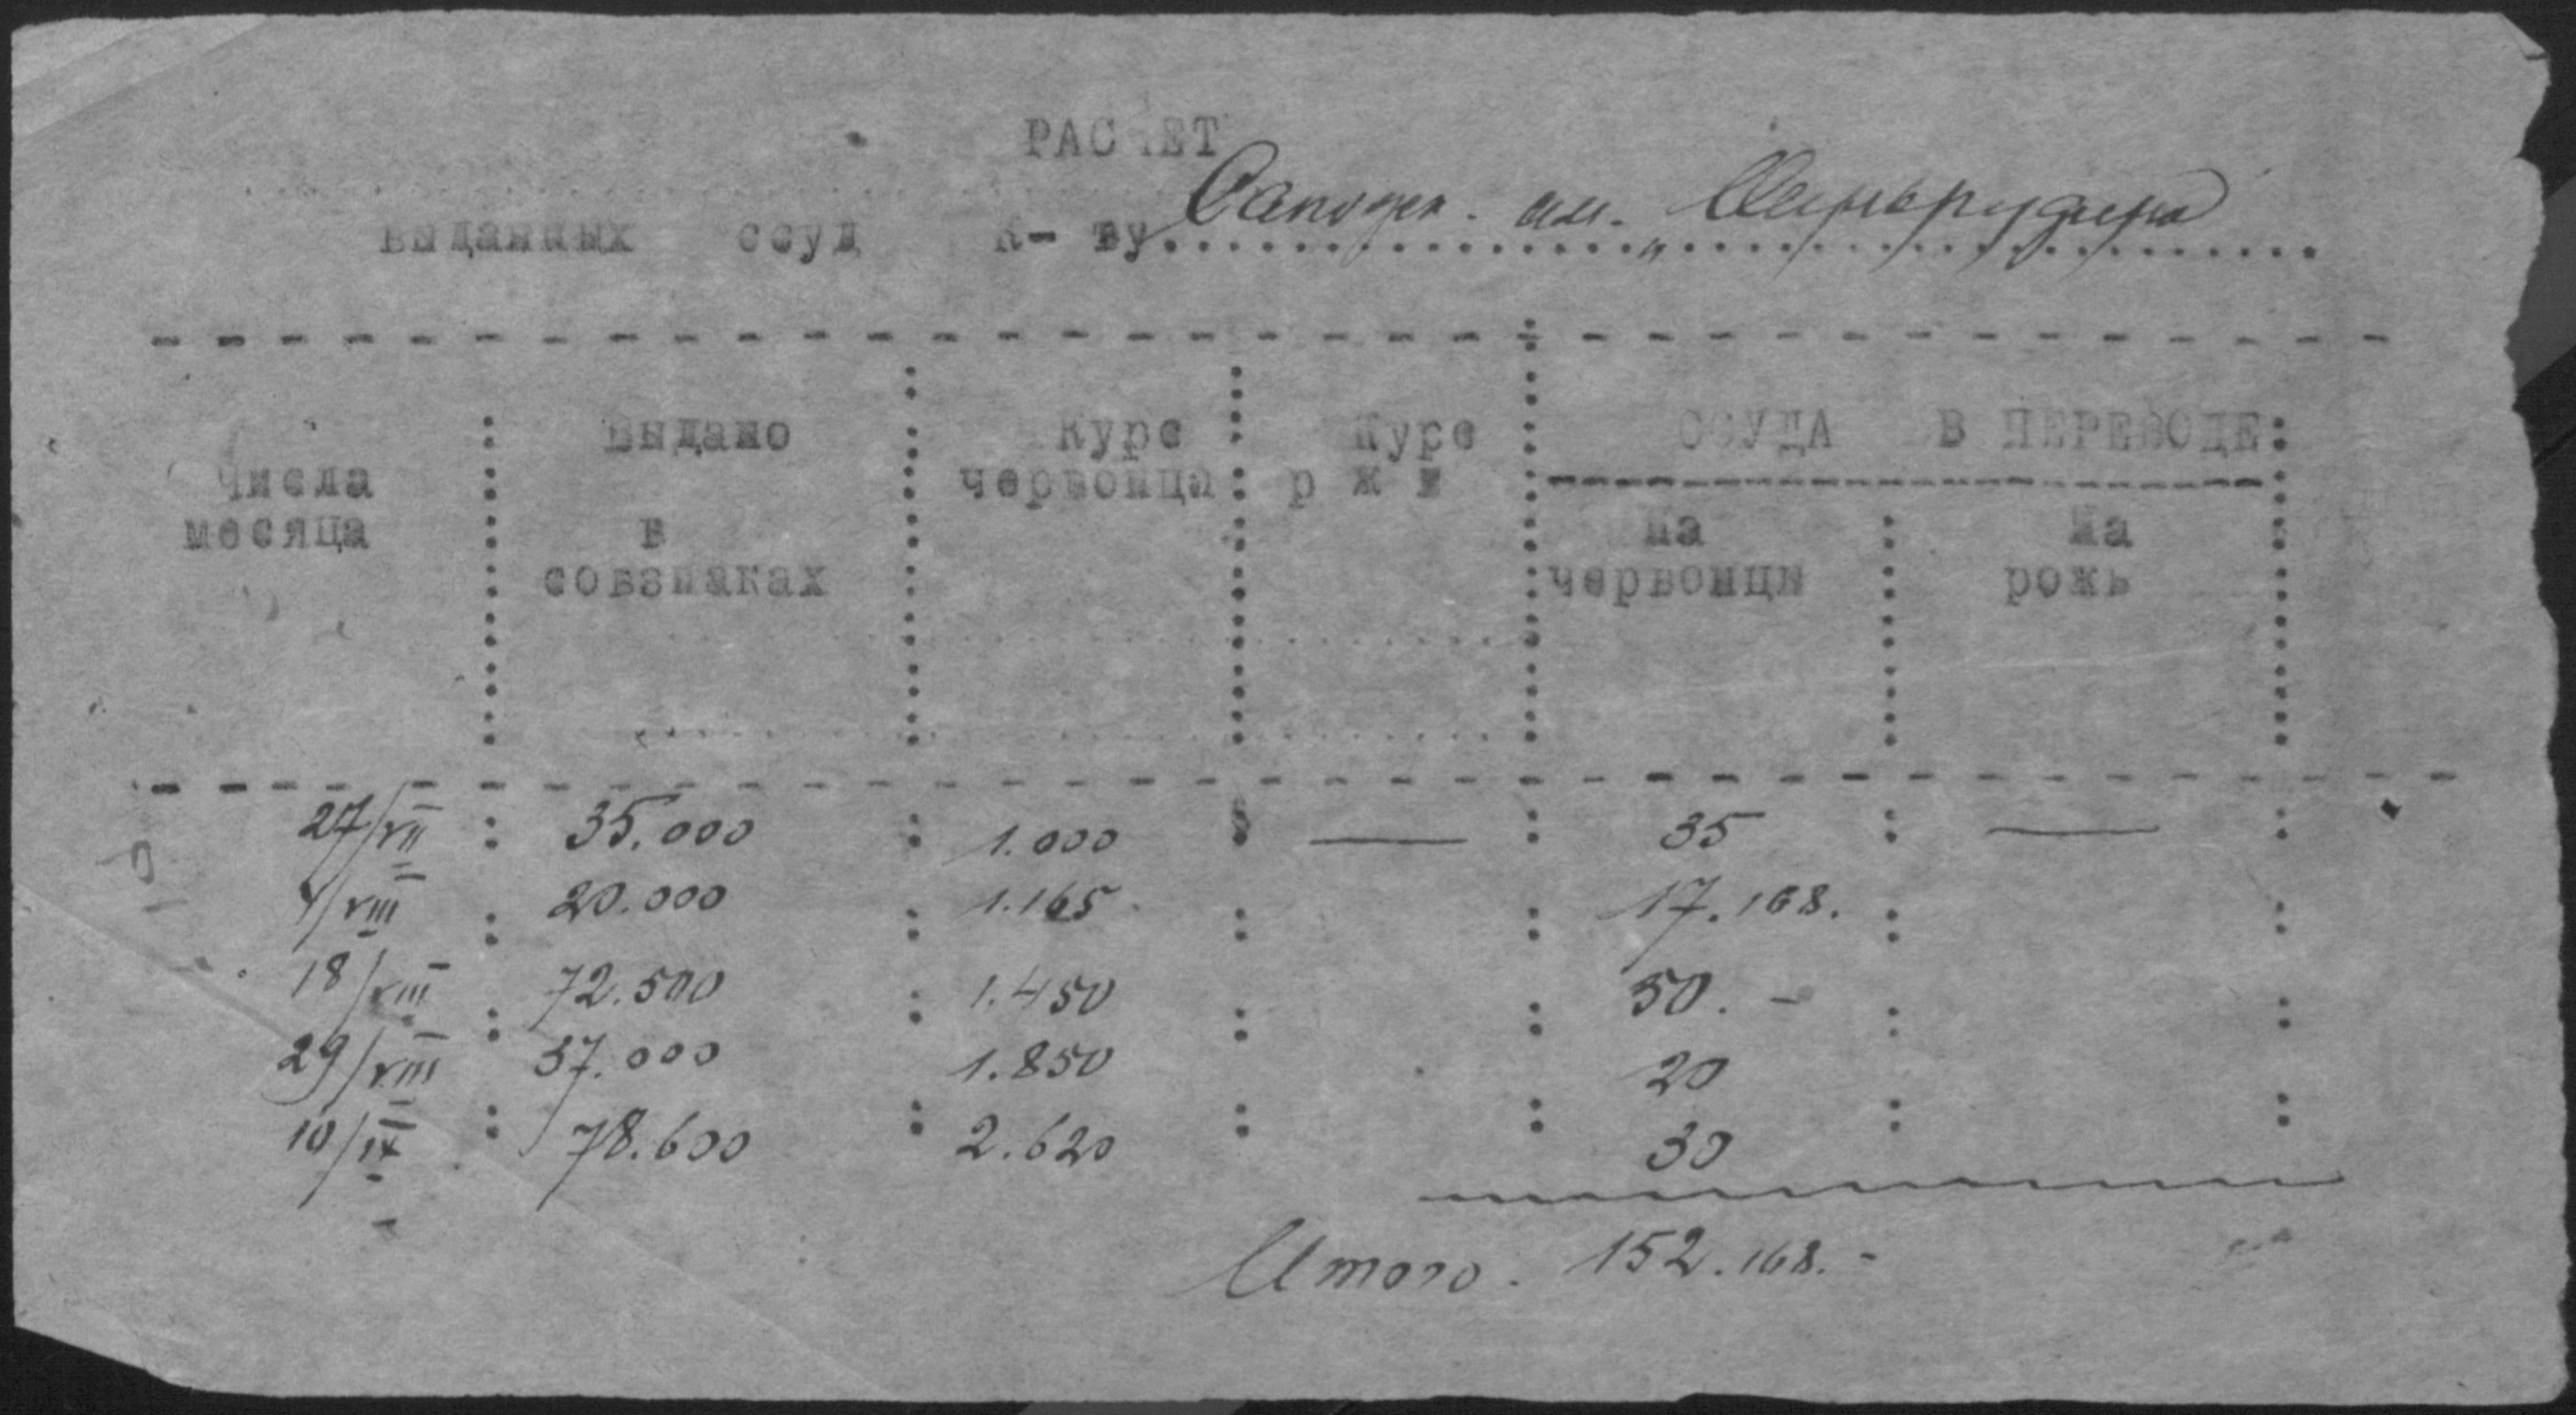 РАС ЕТ
выданных ссуд К-ту Сапожк. им.
Числа месяца : Выдано в совзнаках : Курс червонца : Курс р ж и : ССУДА В ПЕРЕВОДЕ:
На червонцы : На рожь
27/VII : 35.000 : 1.000 : — : 35 : — :
4/VIII : 20.000 : 1.165 : : 17.168. : :
18/VIII : 72.500 : 1.450 : : 50. - : :
29/VIII : 37.000 : 1.850 : : 20 : :
10/IX : 78.600 : 2.620 : : 30 : :
Итого. 152.168.-